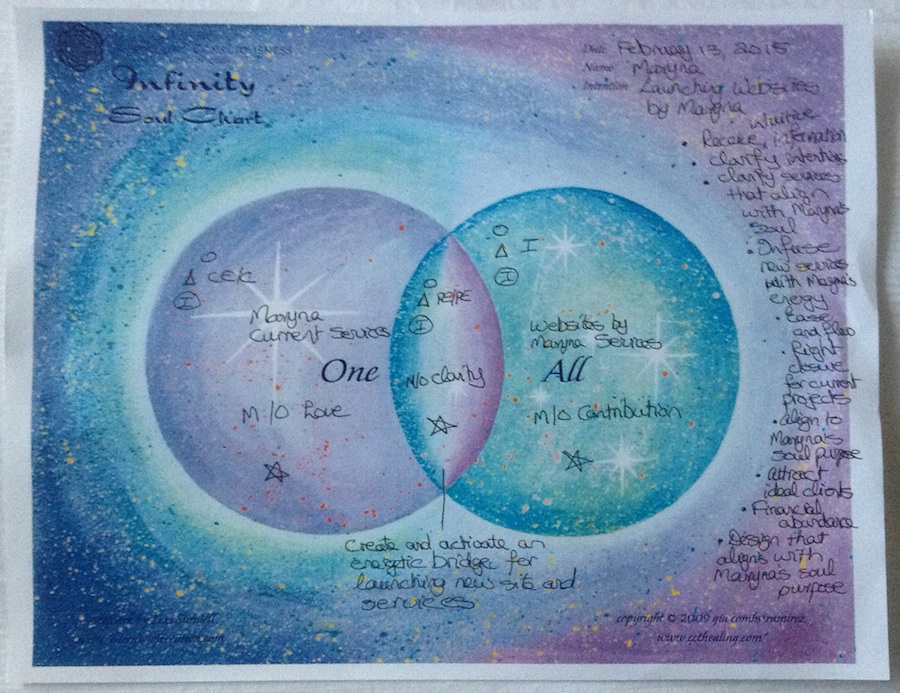 CONSCIOUSNESS
Infinity
Soul Chart
Date February 13, 2015
Name Maryna
Intention Launching Websites
by Maryna
• Receive intuitive information
• clarify intentions
• clarify services
that align
with Maryna's
soul
• Infuse
new services
with Maryna's
energy
• Ease
and flow
• Right
closure
for current
projects
• align to
Maryna's
soul purpose
• Attract
ideal clients
• Financial
abundance
• Design that
aligns with
Maryna's soul
purpose
CE/C
I
Maryna
Current Services
One
M/O Love
RE/RE
I
M/O Clarity
I
I
Websites by
Maryna Services
All
M/O Contribution
Create and activate an
energetic bridge for
launching new site and
services
copyright © 2009 combs ramirez
www.ccthealing.com